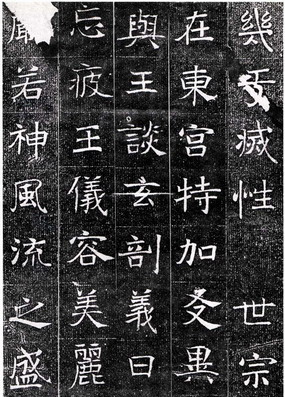 幾滅性　世宗
在東宮特加友異
與王談玄剖義日
忘疲王儀容美麗
若神風流之盛